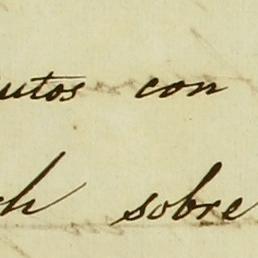 utos con
ch sobre